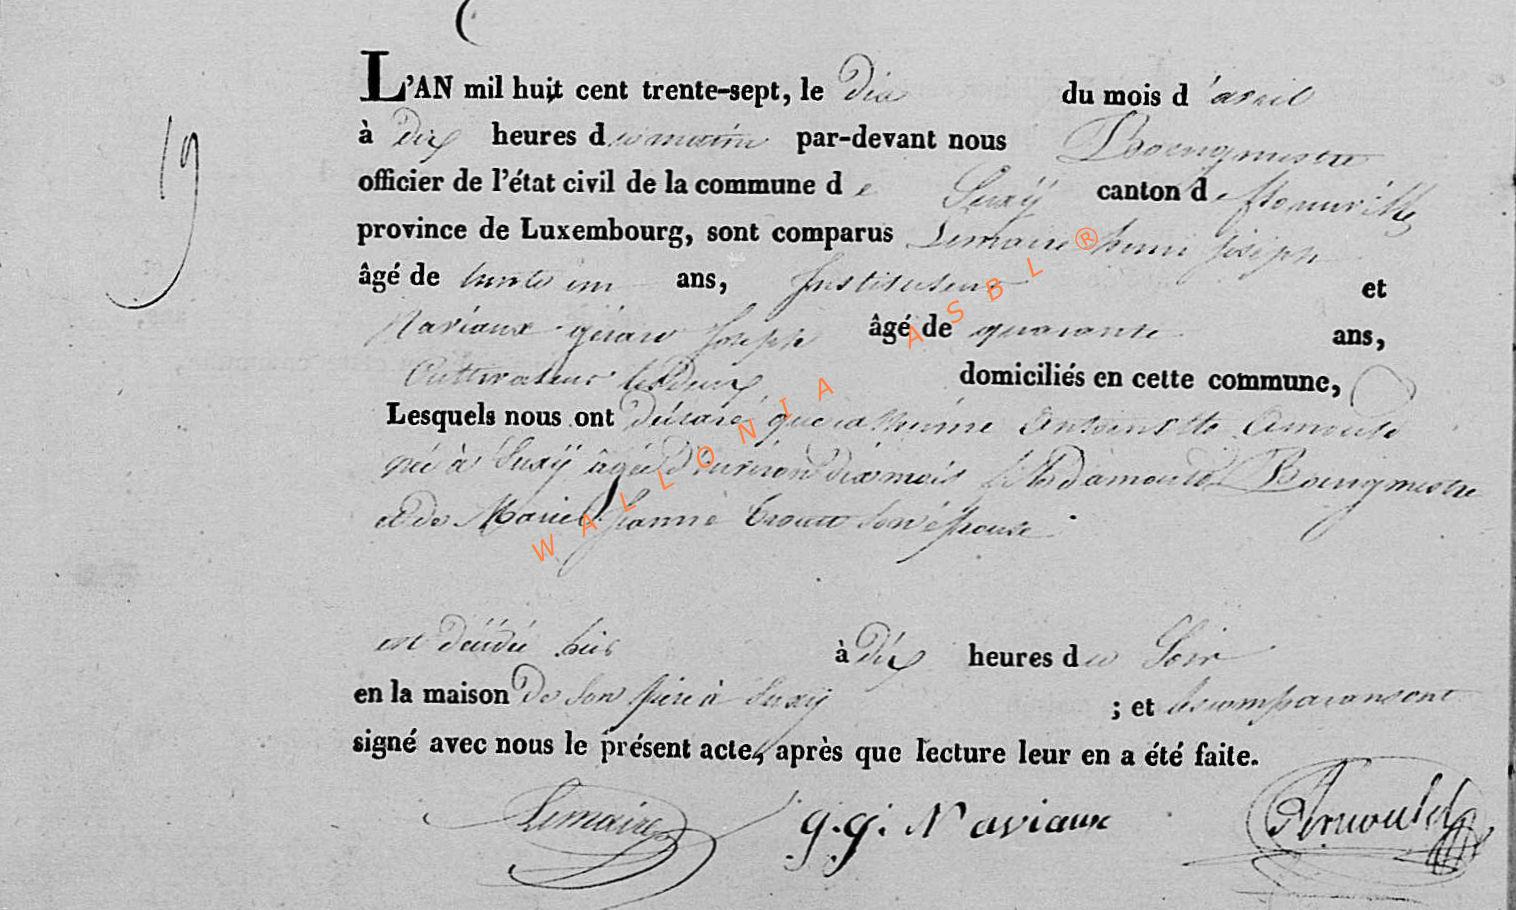 19
L'AN mil huit cent trente-sept, le dix du mois d'avril
à dix heures du matin par-devant nous Bourgmestre
officier de l'état civil de la commune de Suxÿ canton de florenville
province de Luxembourg, sont comparus Lemaire henri joseph
âgé de trente un ans, Instituteur et
Naviaux gérard Joseph âgé de quarante ans,
Cultivateur les deux domiciliés en cette commune,
Lesquels nous ont déclaré que catherine Antoinette Arnould
née à Suxÿ âgée d'environ dix mois fille d'arnould Bourgmestre
et de Marie Jeanne son épouse
est décédée hier à dix heures du Soir
en la maison de son père à Suxÿ ; et les comparans ont
signé avec nous le présent acte, après que lecture leur en a été faite.
Lemaire g.g. Naviaux Arnould
WALLONIA ASBL ®